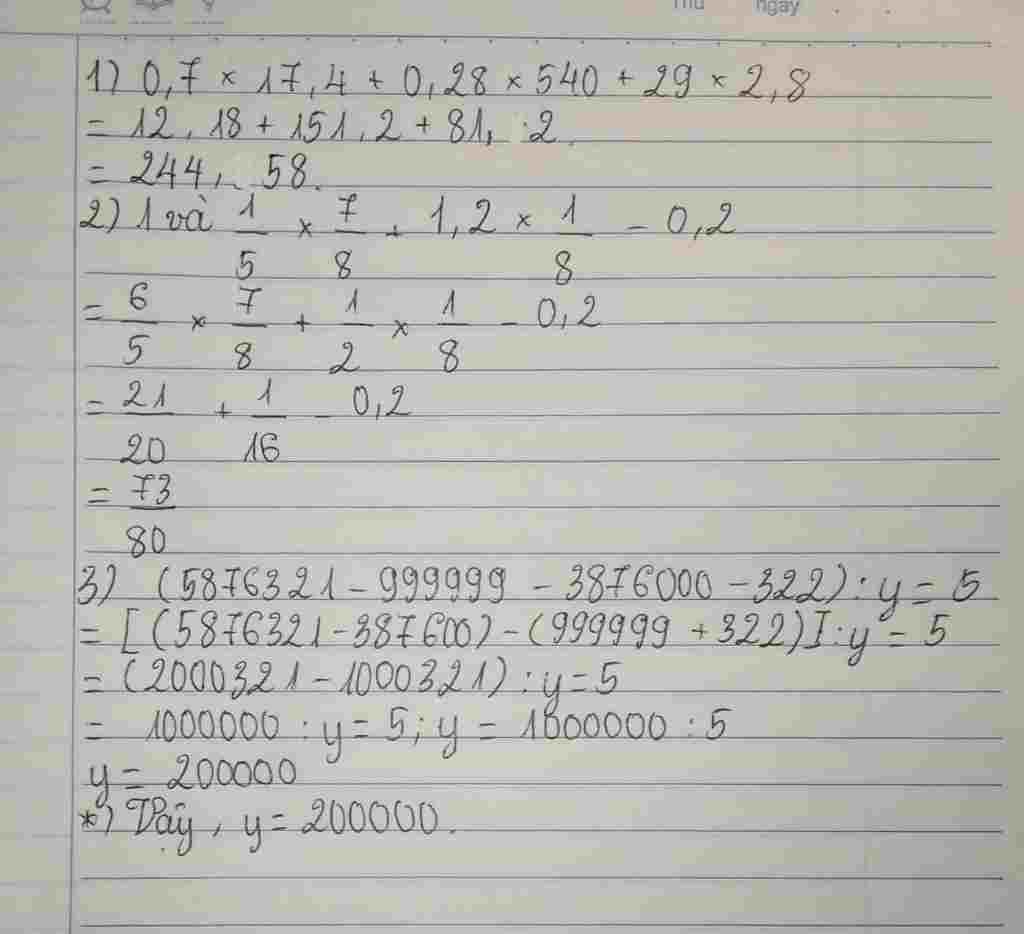 Thứ ngày
1) 0,7 × 17,4 + 0,28 × 540 + 29 × 2,8
= 12,18 + 151,2 + 81,2
= 244,58.
2) 1 và 1/5 × 7/8 + 1,2 × 1/8 - 0,2
= 6/5 × 7/8 + 1/2 × 1/8 - 0,2
= 21/20 + 1/16 - 0,2
= 73/80
3) (5876321 - 999999 - 3876000 - 322) : y = 5
= [(5876321 - 387600) - (999999 + 322)] : y = 5
= (2000321 - 1000321) : y = 5
= 1000000 : y = 5; y = 1000000 : 5
y = 200000
*) Vậy, y = 200000.